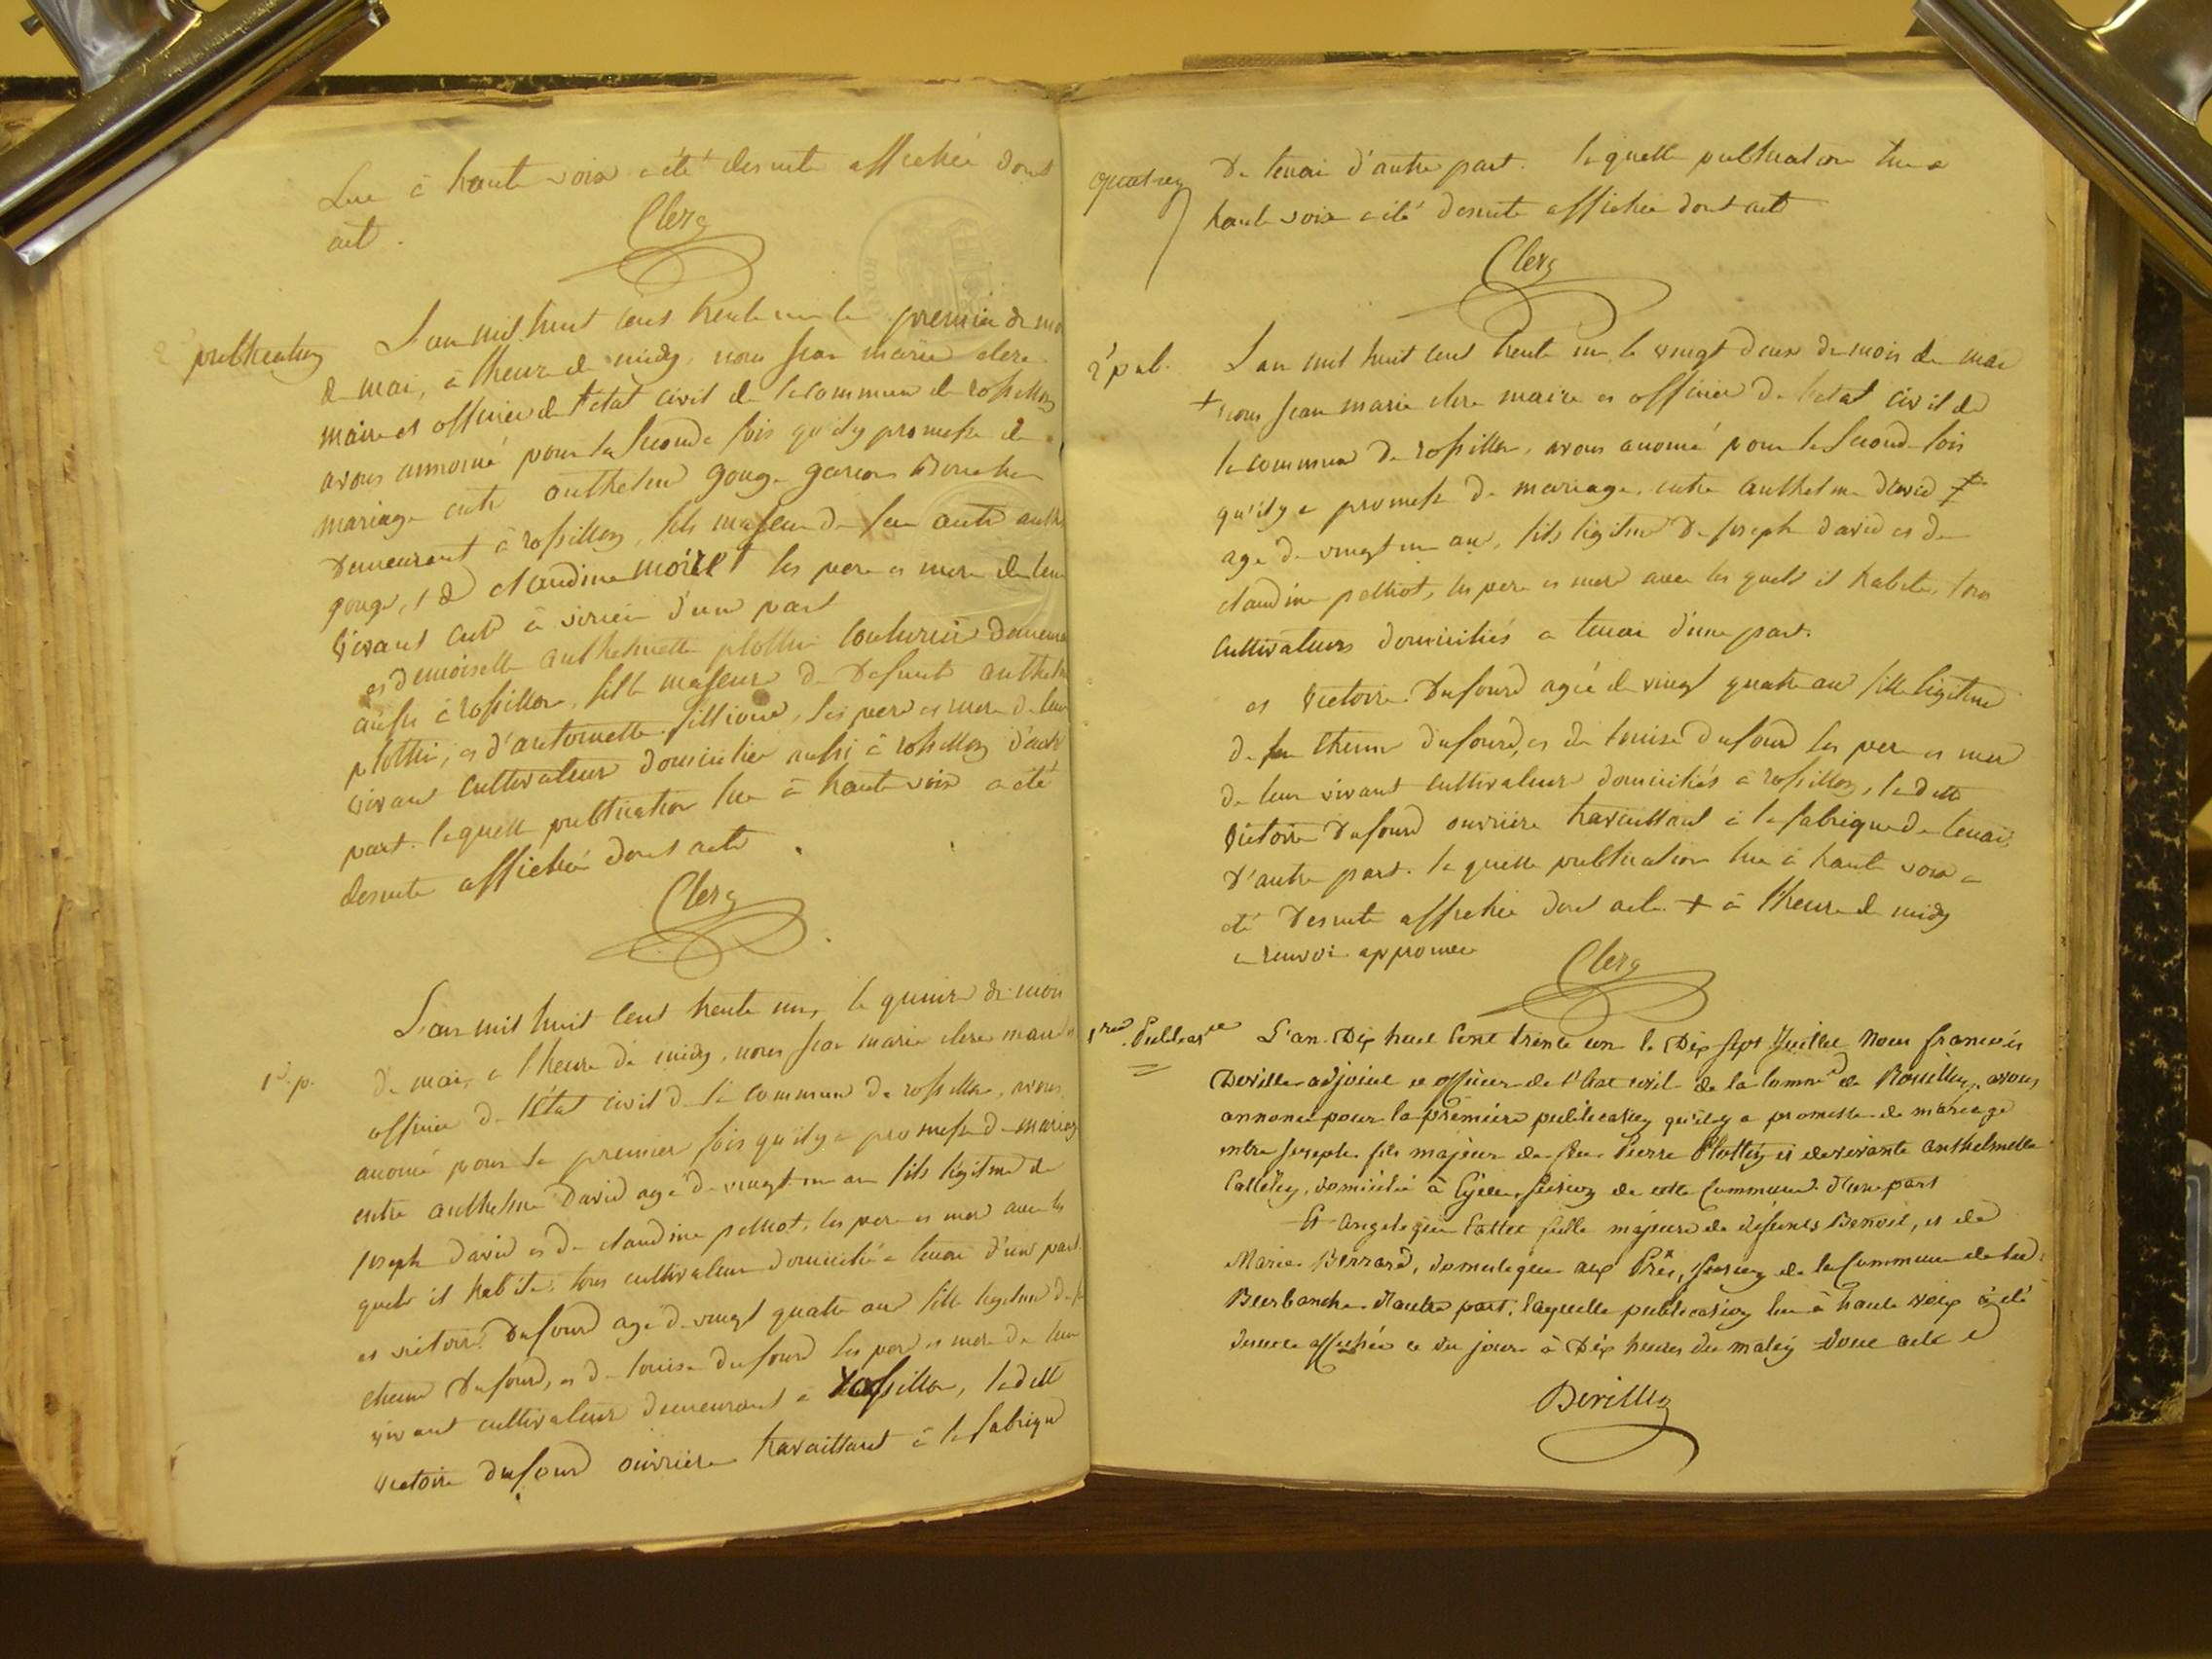 Lue à haute voix a été desuite affichée dont
acte.
Clerc
2e publication
L'an mil huit cent trente un le premier du mois
de mai, à l'heure de midy, nous jean marie clerc
maire et officier de l'état civil de la commune de rossillon
avons annoncé pour la seconde fois qu'il y a promesse de
mariage entre anthelme gouge garçon boucher
demeurant à rossillon, fils majeur de feu autre anthe
gouge, et de claudine morel les pere et mere de leur
vivant cult à virieu d'une part
et demoiselle anthelmette plottin couturière demeura
aussi à rossillon, fille majeure de defunt anthelme
plottin, et d'antoinette fillion, les pere et mere de leur
vivant cultivateur domicilié aussi à rossillon d'autre
part. laquelle publication lue à haute voix a été
desuite affichée dont acte
Clerc
1e p.
L'an mil huit cent trente un, le quinze du mois
de mai, a l'heure de midy, nous jean marie clerc maire et
officier de l'état civil de la commune de rossillon, avons
anoncé pour la premier fois qu'il y a promesse de mariage
entre anthelme David agé de vingt un an fils légitime de
joseph david et de claudine pelliot, les pere et mere avec les
quels il habite, tous cultivateur domicilié a tenai d'une part
et victoire Dufourd agé de vingt quatre ans fille legitime de feu
etienne Dufourd, et de louise dufourd les pere et mere de leur
vivant cultivateur demeurant a rossillon, ladite
victoire dufourd ouvrière travaillant à la fabrique
quatrez
de tenai d'autre part. laquelle publication lue a
haute voix a été desuite affichée dont acte
Clerc
2e pub.
L'an mil huit cent trente un, le vingt deux du mois de mai
+ nous jean marie clerc maire et officier de l'etat civil de
la commune de rossillon, avons anoncé pour la second fois
qu'il y a promesse de mariage, entre anthelme david
age de vingt un ans, fils legitime de joseph david et de
claudine pelliot, les pere et mere avec les quels il habite, tous
cultivateurs domiciliés a tenai d'une part.
et victoire Dufourd agée de vingt quatre ans fille légitime
de feu etienne dufourd, et de louise dufourd les pere et mere
de leur vivant cultivateur domiciliés à rossillon, ladite
victoire Dufourd ouvrière travaillant à la fabrique de tenai,
d'autre part. laquelle publication lue à haute voix a
été desuite affichée dont acte + à l'heure de midy
renvoi approuvée
Clerc
1re Publicaon
L'an Dix huit cent trente un le Dix sept Juillet Nous françois
Deville adjoint et officier de l'état civil de la comme de Rossillon, avons
annoncé pour la première publication qu'il y a promesse de mariage
entre Joseph fils majeur de feu Pierre Plottin et de vivante anthelmette
Callety, domicilié à Egieu, section de cette commune d'une part
Et angelique Cattet fille majeure de défunts Benoit, et de
Marie Berrard, domestique aux Prés, section de la commune de la
Burbanche d'autre part, laquelle publication lue à haute voix a été
desuite affichée ce dit jour à Dix heures du matin dont acte
Deville